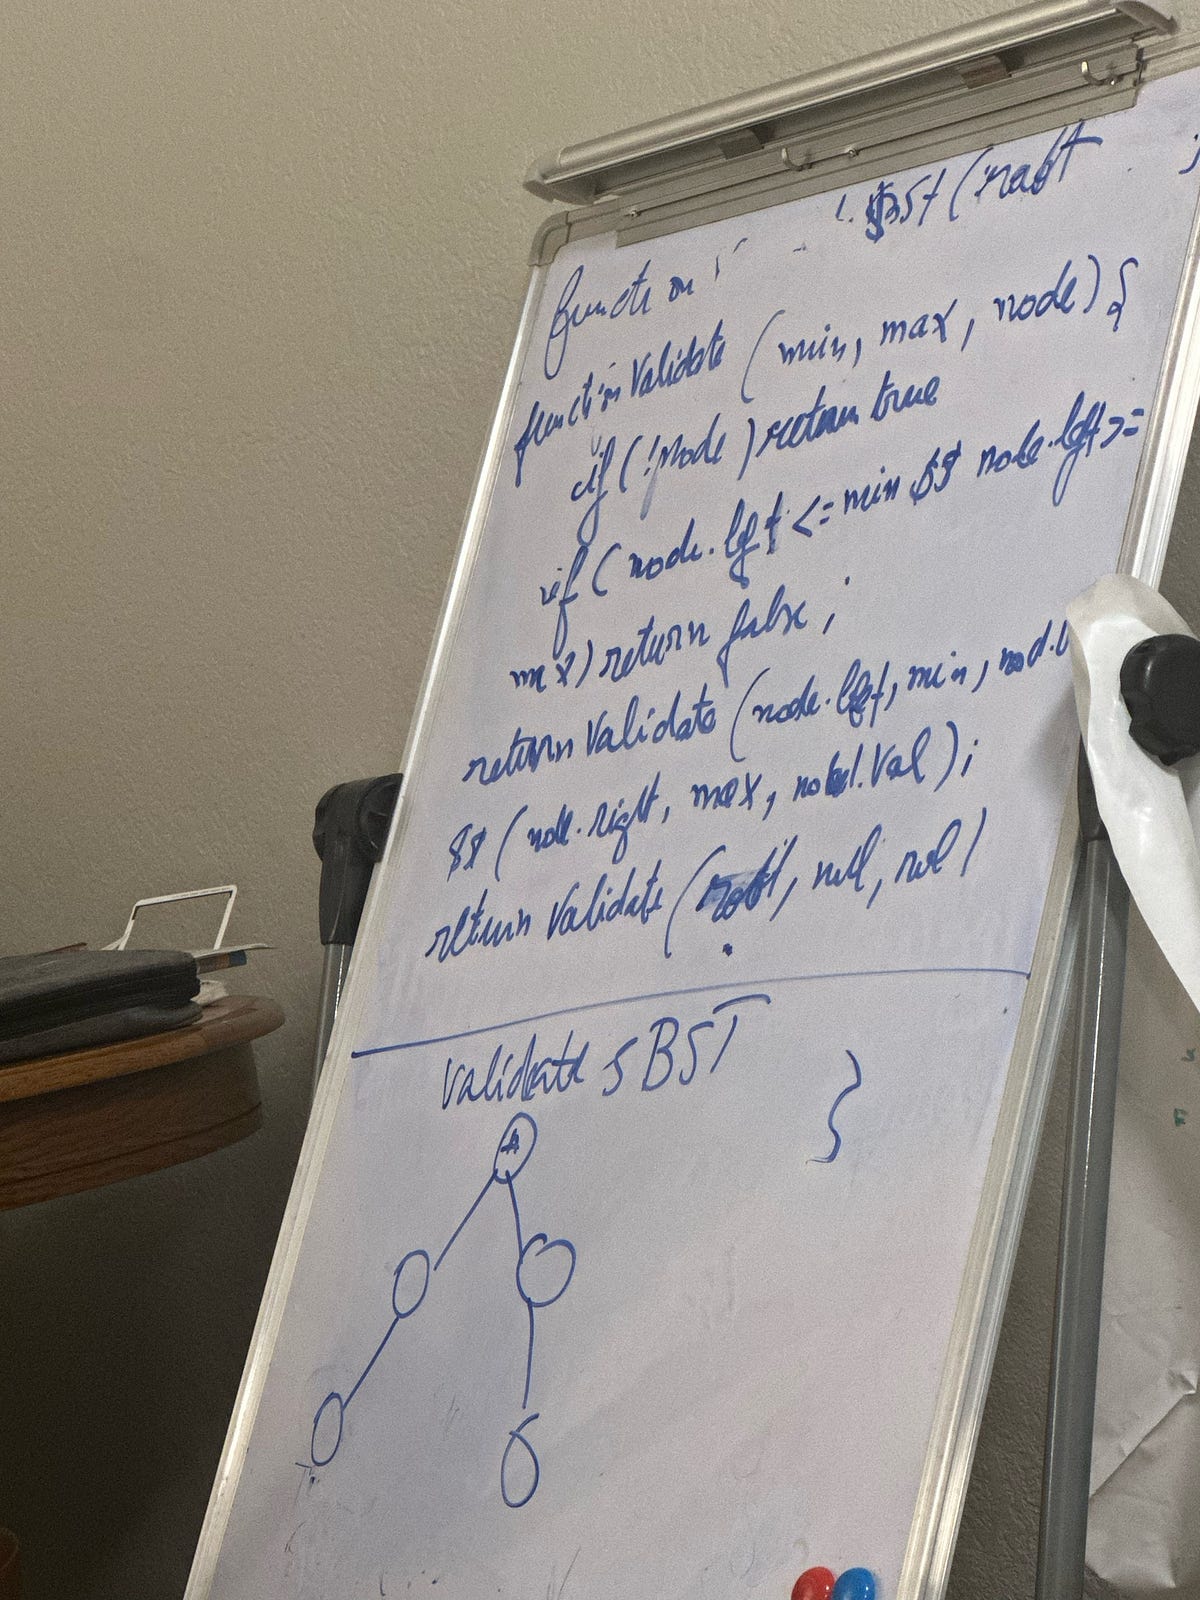 function BSt (root
function Validate (min, max, node) {
if (!node) return true
if (node.left <= min && node.left >=
max) return false;
return Validate (node.left, min, nod.
&& (node.right, max, noted.Val);
return Validate (root, null, null)
validate s BST
}
A